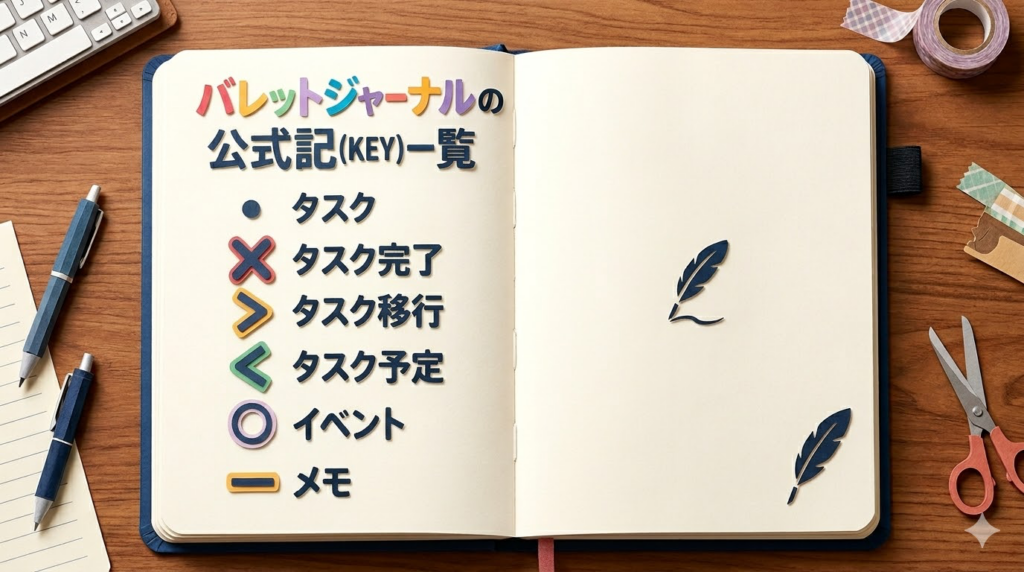 バレットジャーナルの
公式記(KEY)一覧
• タスク
× タスク完了
> タスク移行
< タスク予定
○ イベント
− メモ